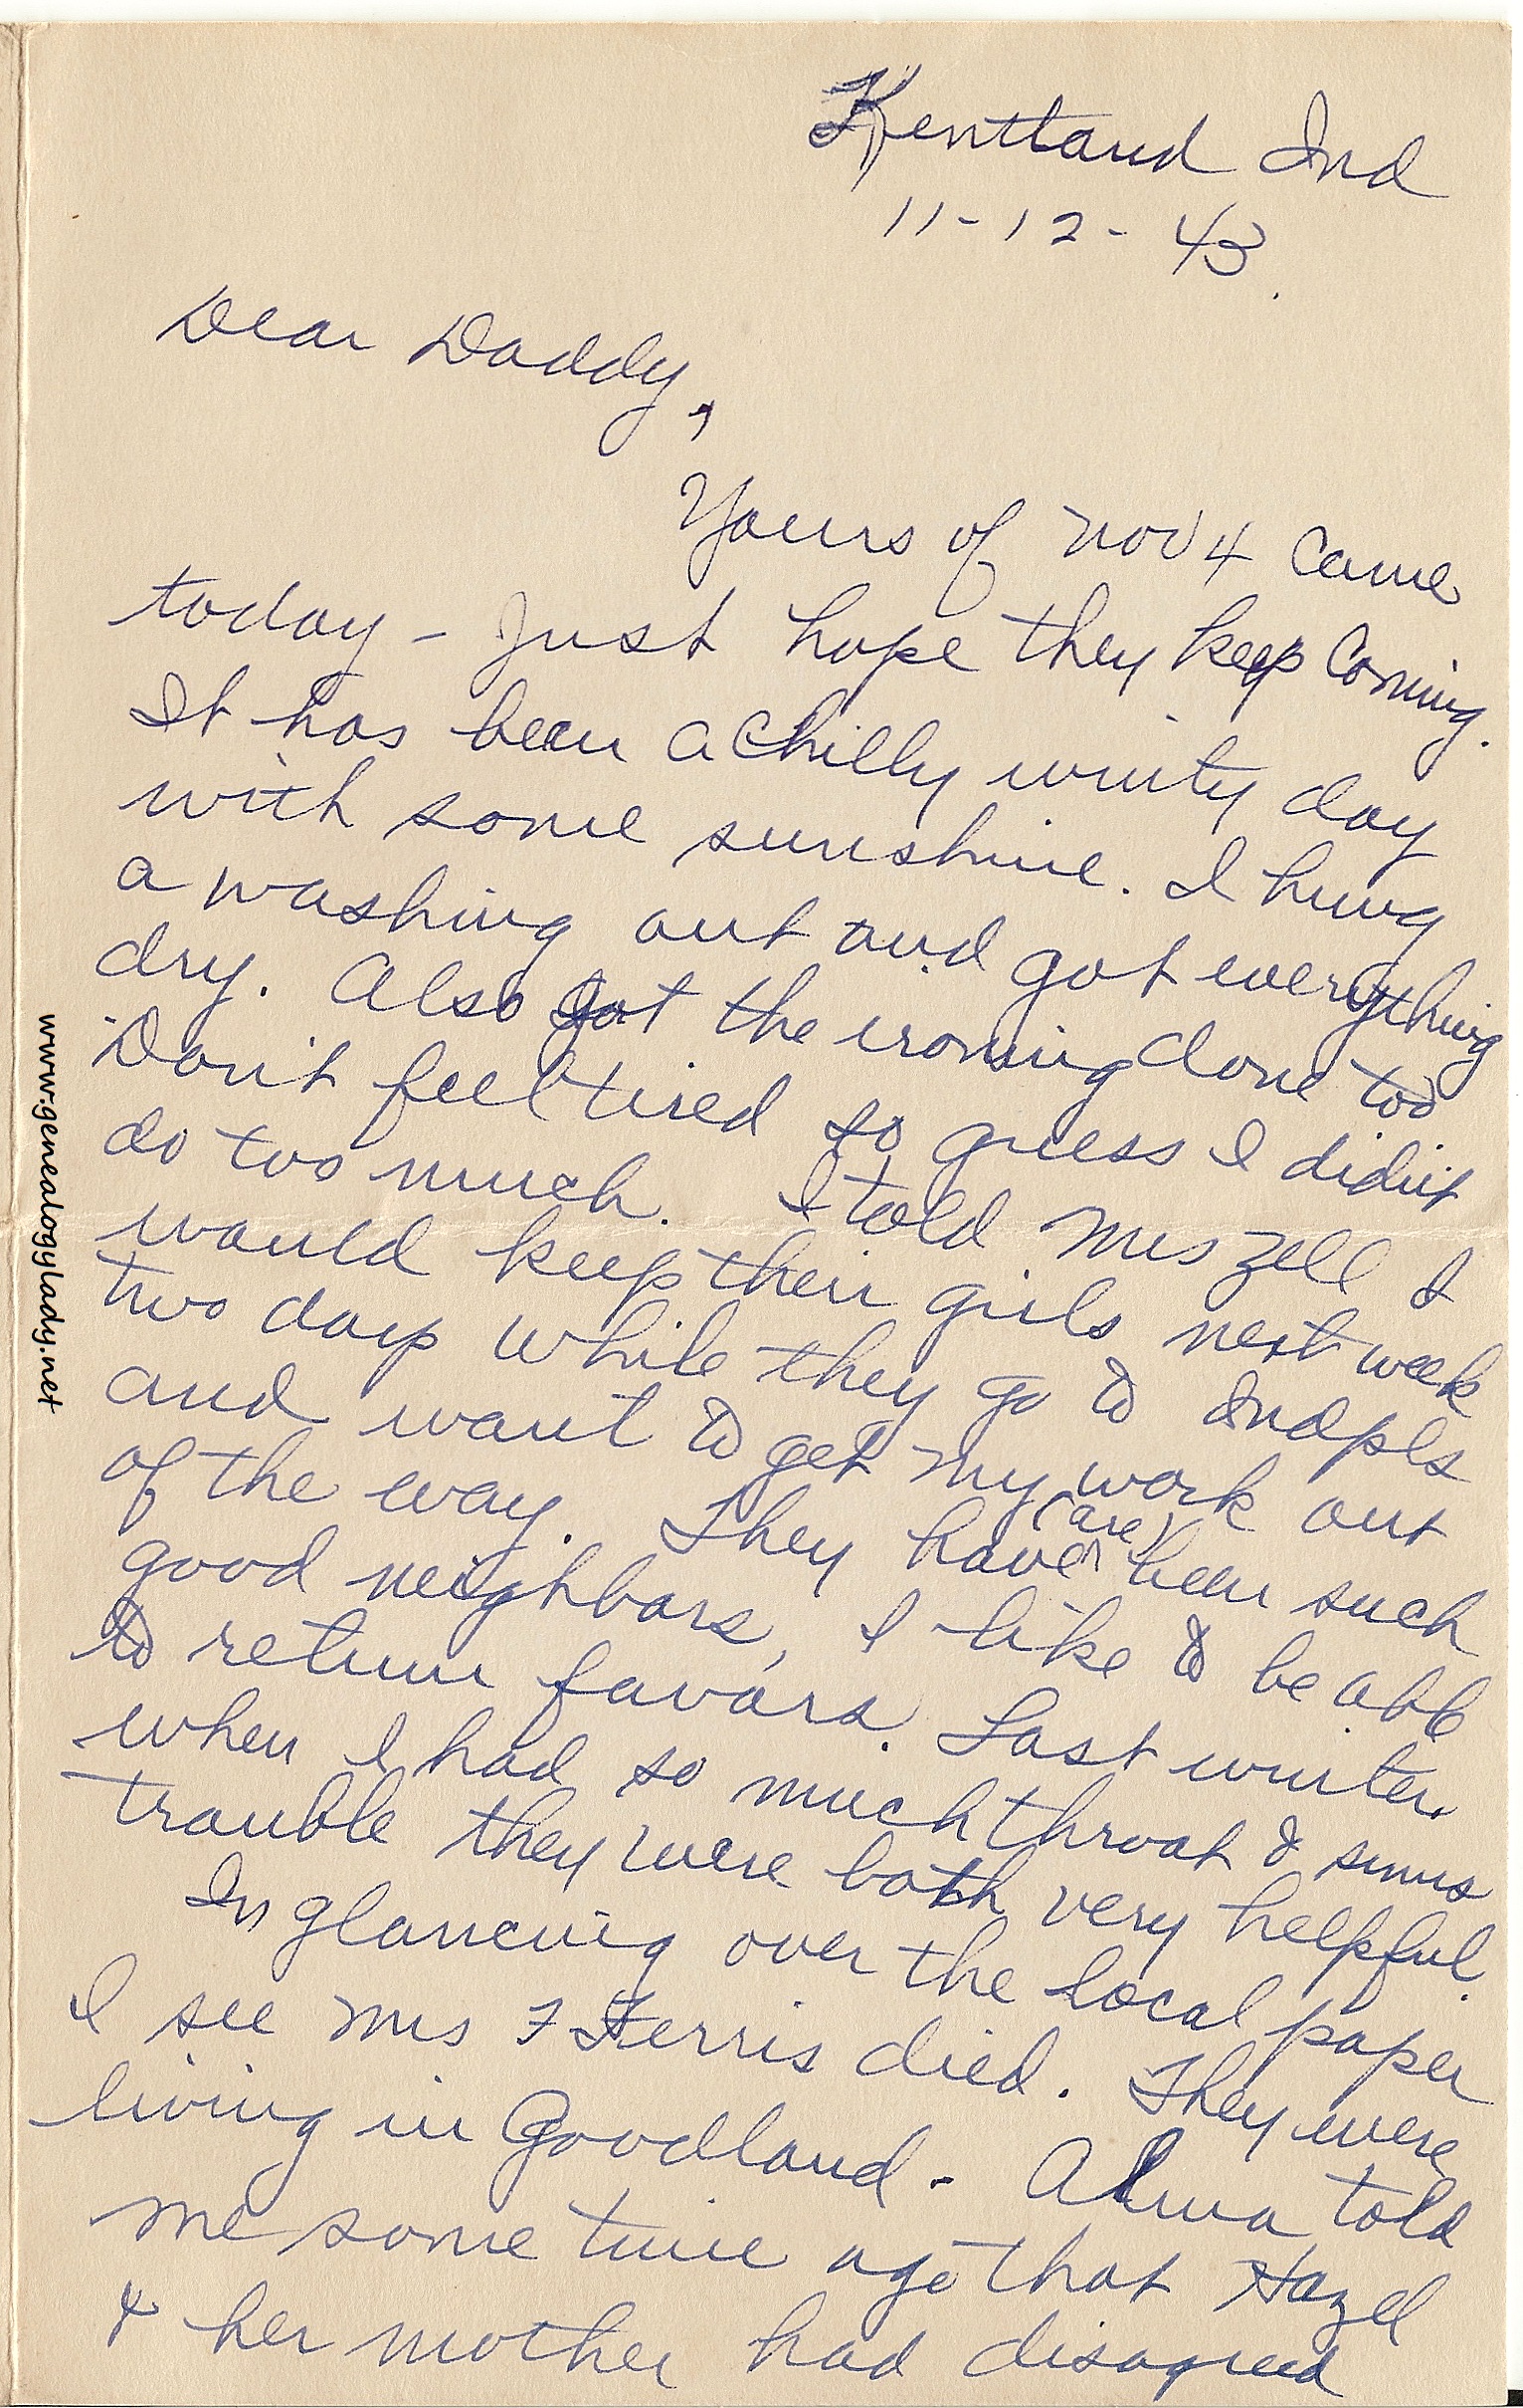 Kentland Ind
11-12-43.
Dear Daddy,
Yours of Nov 4 came
today - Just hope they keep coming.
It has been a chilly winty day
with some sunshine. I hung
a washing out and got everything
dry. Also got the ironing done too
Don't feel tired so guess I didn't
do too much. I told Mrs Zell I
would keep their girls next week
two days while they go to Indpls
and want to get my work out
of the way. They have (are) been such
good neighbors, I like to be able
to return favors. Last winter
when I had so much throat & sinus
trouble they were both very helpful.
In glancing over the local paper
I see Mrs F Ferris died. They were
living in Goodland - Alma told
me some time ago that Hazel
& her mother had disagreed
www.genealogylady.net